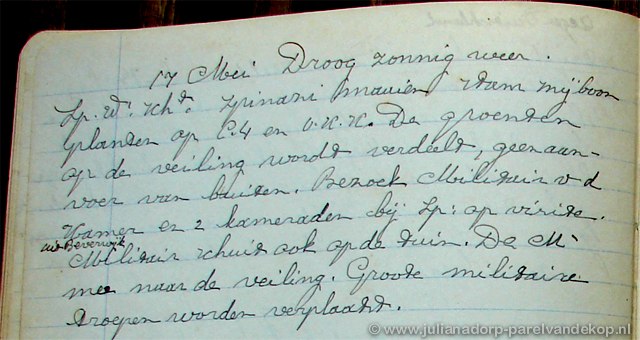 17 Mei Droog zonnig weer.
Sp. W. Scht. Spinazi maaien Stam Mijboon
planten op C.4 en O.K.K. De groenten
op de veiling wordt verdeelt, geen aan-
voer van buiten. Bezoek Militair v d
Hamer en 2 kameraden bij Sp: op visite.
uit Beverwijk
Militair schuit ook op de tuin. De M
mee naar de veiling. Groote militaire
troepen worden verplaatst.
© www.julianadorp-parelvandekop.nl